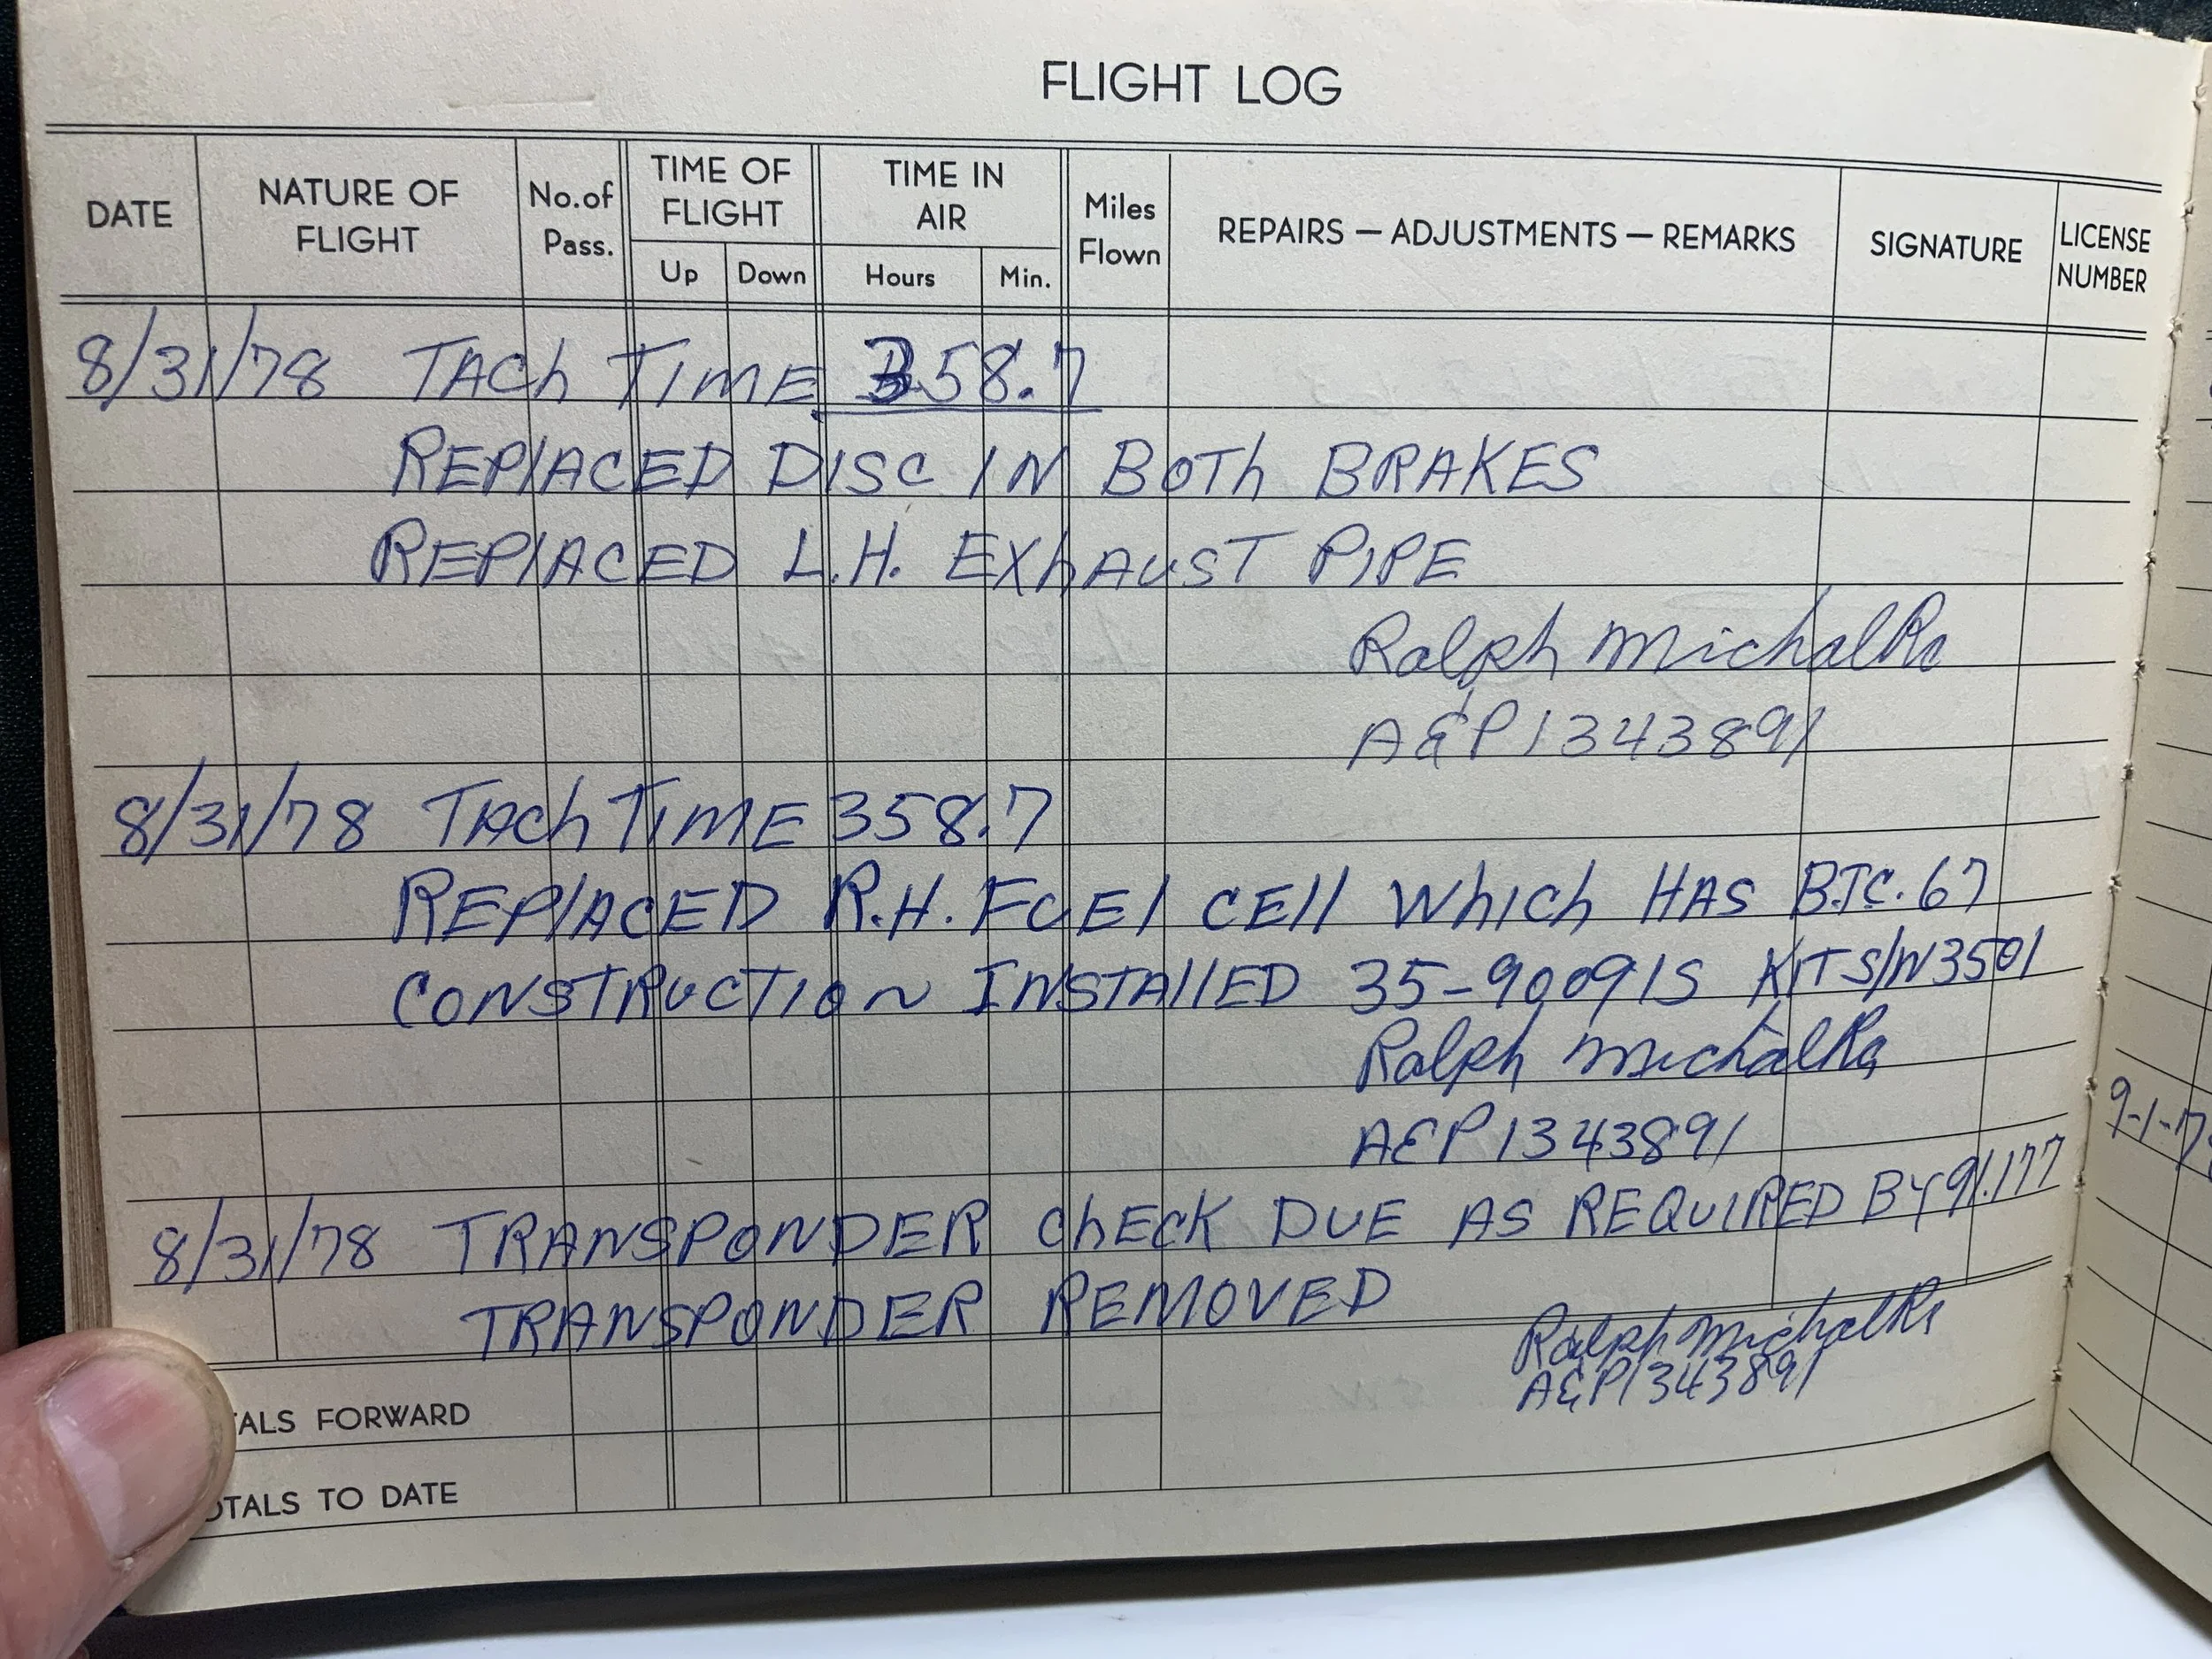 FLIGHT LOG
DATE NATURE OF FLIGHT No. of Pass. TIME OF FLIGHT Up Down TIME IN AIR Hours Min. Miles Flown REPAIRS — ADJUSTMENTS — REMARKS SIGNATURE LICENSE NUMBER
8/31/78 TACh TIME 358.7
REPlACED DISC IN BOTh BRAKES
REPlACED L.H. EXhAUST PIPE
Ralph Michalka
A&P 1343891
8/31/78 TACh TIME 358.7
REPlACED R.H. FUEl CEll WhICh HAS B.T.C. 67
CONSTRUCTION INSTAllED 35-90091S KIT S/N 3501
Ralph Michalka
A&P 1343891
8/31/78 TRANSPONDER ChECK DUE AS REQUIRED BY 91.177
TRANSPONDER REMOVED
Ralph Michalka
A&P 1343891
TALS FORWARD
OTALS TO DATE